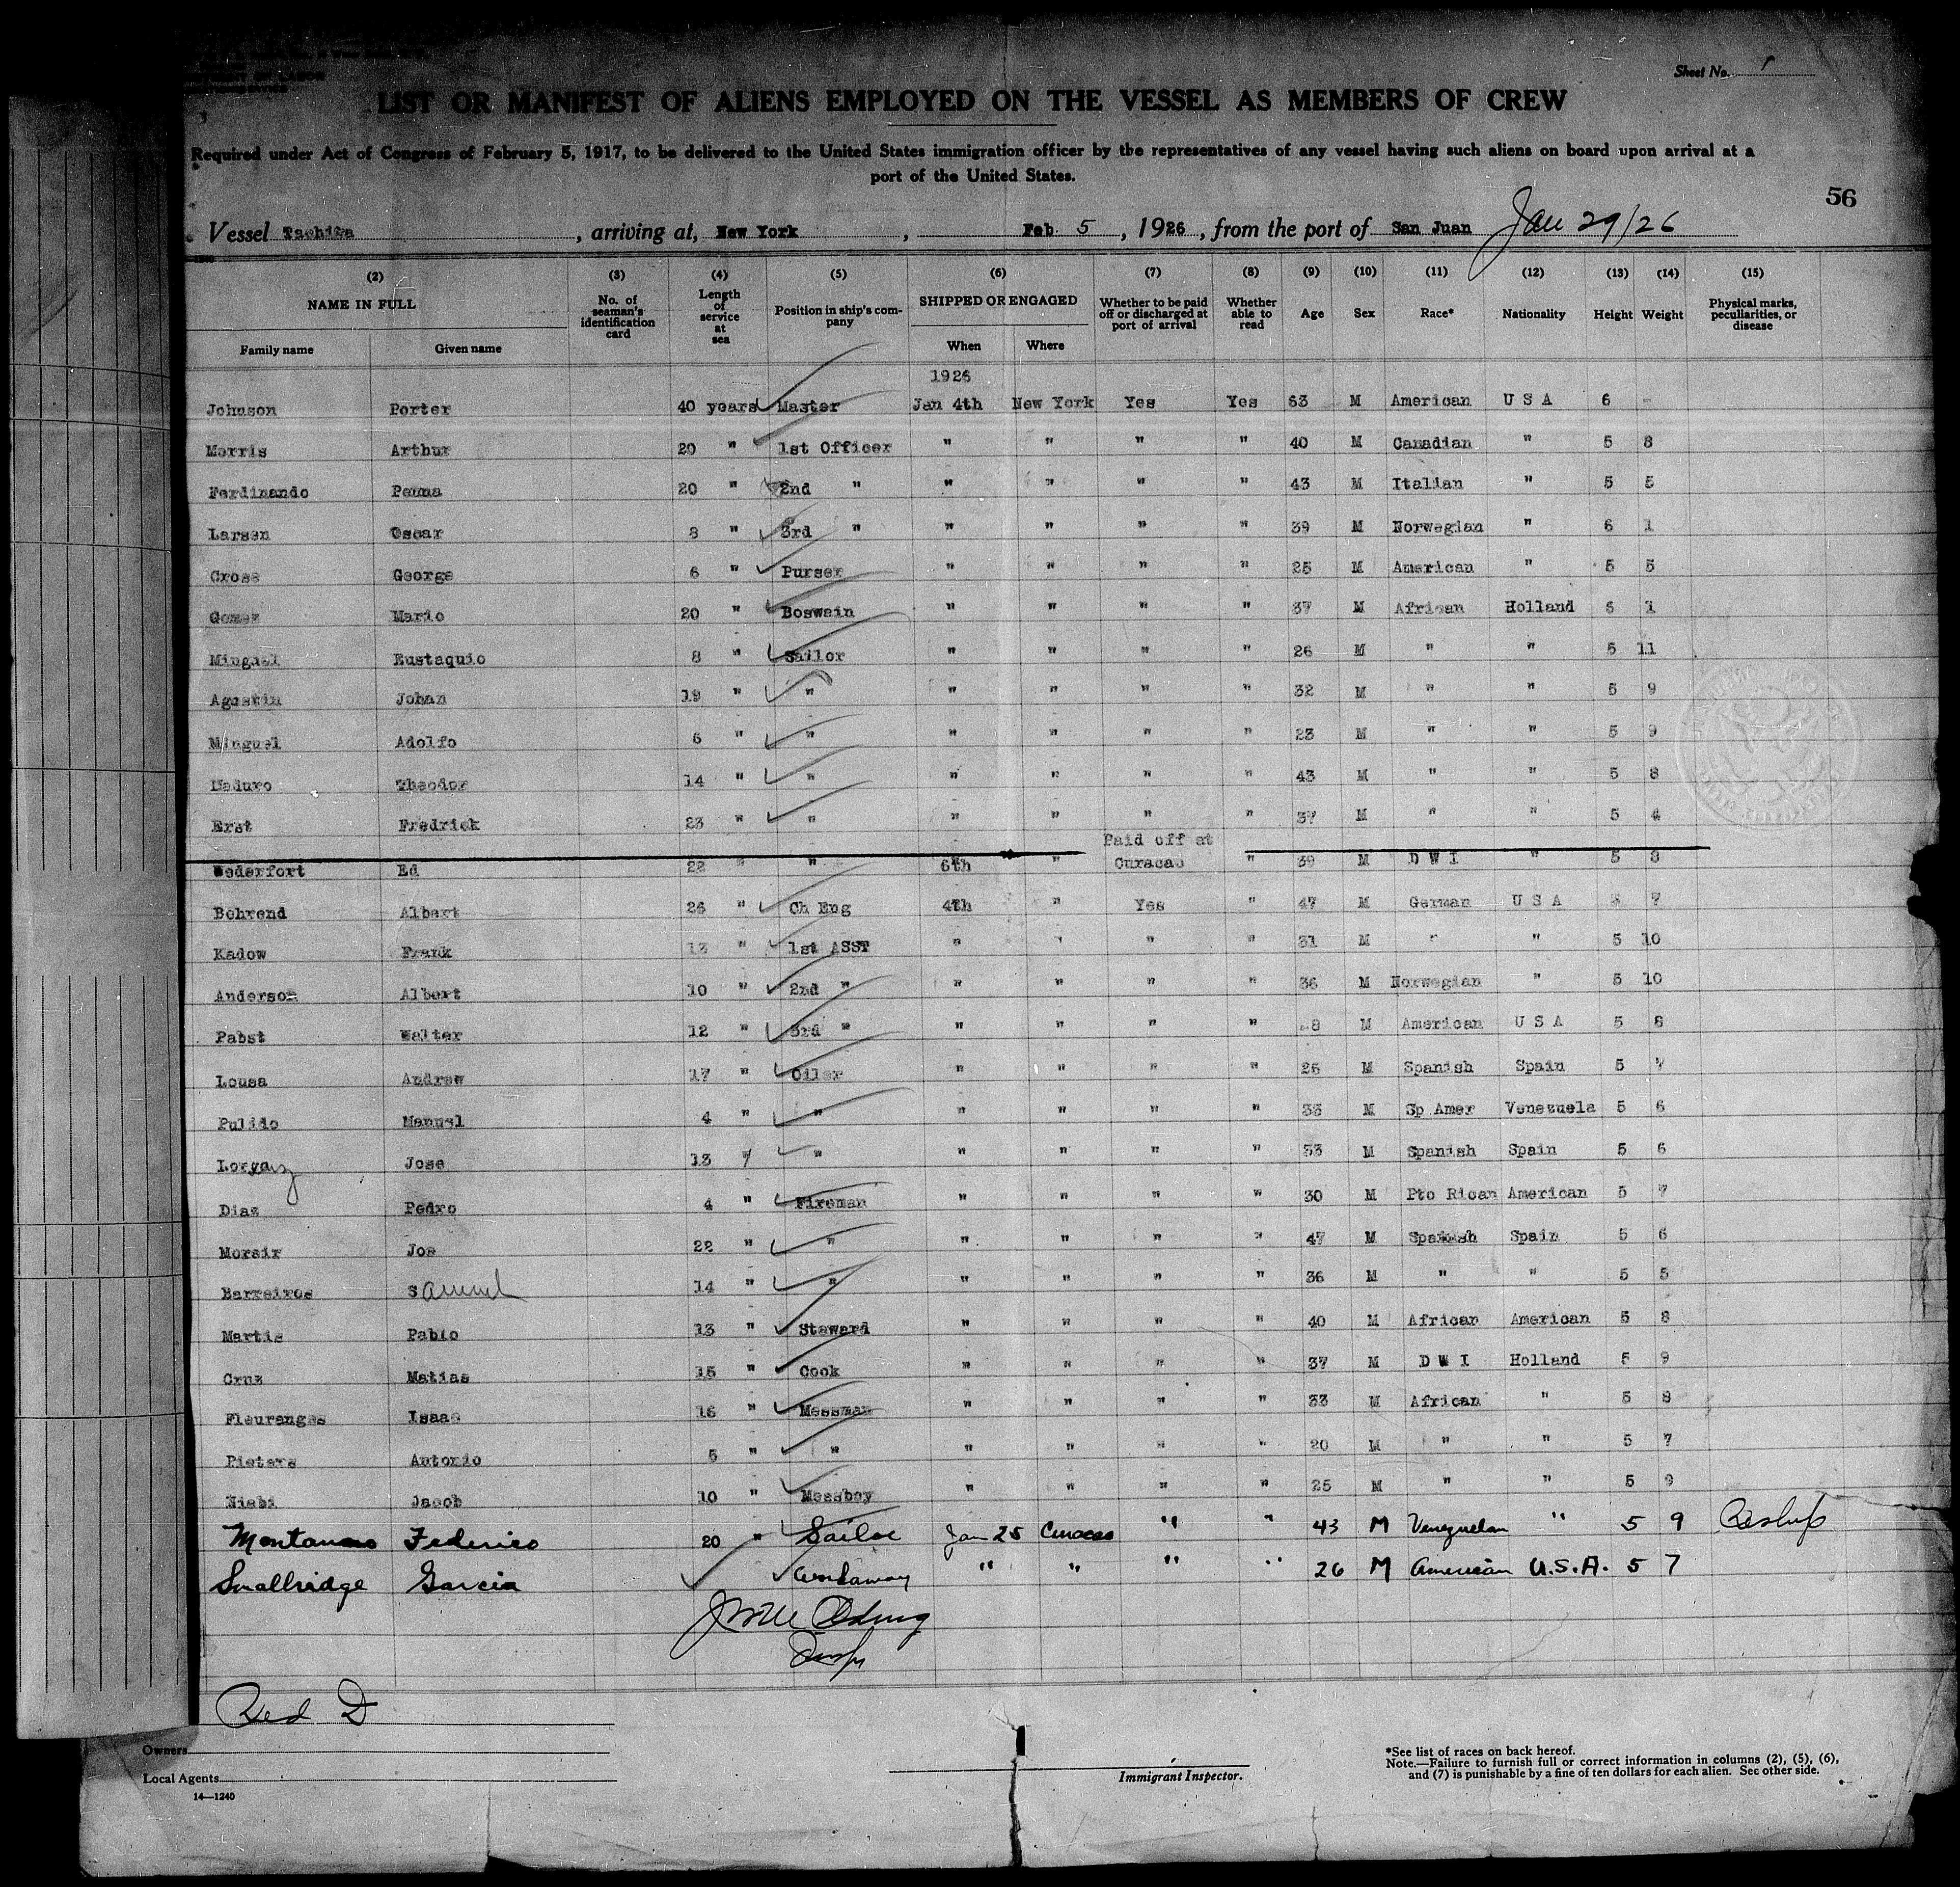 Sheet No. 1
LIST OR MANIFEST OF ALIENS EMPLOYED ON THE VESSEL AS MEMBERS OF CREW
Required under Act of Congress of February 5, 1917, to be delivered to the United States immigration officer by the representatives of any vessel having such aliens on board upon arrival at a
port of the United States.
56
Vessel Tachira, arriving at, New York, Feb 5, 1926, from the port of San Juan Jan 29/26
(2) (3) (4) (5) (6) (7) (8) (9) (10) (11) (12) (13) (14) (15)
NAME IN FULL No. of seaman's identification card Length of service at sea Position in ship's company SHIPPED OR ENGAGED Whether to be paid off or discharged at port of arrival Whether able to read Age Sex Race* Nationality Height Weight Physical marks, peculiarities, or disease
Family name Given name When Where
1926
Johnson Porter 40 years Master Jan 4th New York Yes Yes 63 M American U S A 6 -
Morris Arthur 20 " 1st Officer " " " " 40 M Canadian " 5 8
Ferdinando Penna 20 " 2nd " " " " " 43 M Italian " 5 5
Larsen Oscar 8 " 3rd " " " " " 39 M Norwegian " 6 1
Cross George 6 " Purser " " " " 25 M American " 5 5
Gomez Mario 20 " Boswain " " " " 37 M African Holland 6 1
Minguel Eustaquio 8 " Sailor " " " " 26 M " " 5 11
Agustin Johan 19 " " " " " " 32 M " " 5 9
Minguel Adolfo 6 " " " " " " 23 M " " 5 9
Maduro Theodor 14 " " " " " " 43 M " " 5 8
Erst Fredrick 23 " " " " " " 37 M " " 5 4
Paid off at
Wederfort Ed 22 " " 6th " Curacao " 39 M D W I " 5 8
Behrend Albert 26 " Ch Eng 4th " Yes " 47 M German U S A 7
Kadow Frank 13 " 1st ASST " " " " 31 M " " 5 10
Anderson Albert 10 " 2nd " " " " " 36 M Norwegian " 5 10
Pabst Walter 12 " 3rd " " " " " 8 M American U S A 5 8
Lousa Andrew 17 " Oiler " " " " 26 M Spanish Spain 5 7
Pulido Manuel 4 " " " " " " 33 M Sp Amer Venezuela 5 6
Jose 13 " " " " " " 33 M Spanish Spain 5 6
Diaz Pedro 4 " Fireman " " " " 30 M Pto Rican American 5 7
Morsir Jos 22 " " " " " " 47 M Spanish Spain 5 6
Barreiros Samuel 14 " " " " " " 36 M " " 5 5
Martis Pablo 13 " Steward " " " " 40 M African American 5 8
Cruz Matias 15 " Cook " " " " 37 M D W I Holland 5 9
Fleuranges Isaac 16 " Messman " " " " 33 M African " 5 8
Pieters Antonio 5 " " " " " " 20 M " " 5 7
Nisbi Jacob 10 " Messboy " " " " 25 M " " 5 9
Federico 20 " Sailor Jan 25 Curacao " " 43 M Venezuelan " 5 9 Reship
Smallridge Garcia Workaway " " " " 26 M American U.S.A. 5 7
Insp
Red D
Owners
Local Agents
14—1240
Immigrant Inspector.
*See list of races on back hereof.
Note.—Failure to furnish full or correct information in columns (2), (5), (6),
and (7) is punishable by a fine of ten dollars for each alien. See other side.